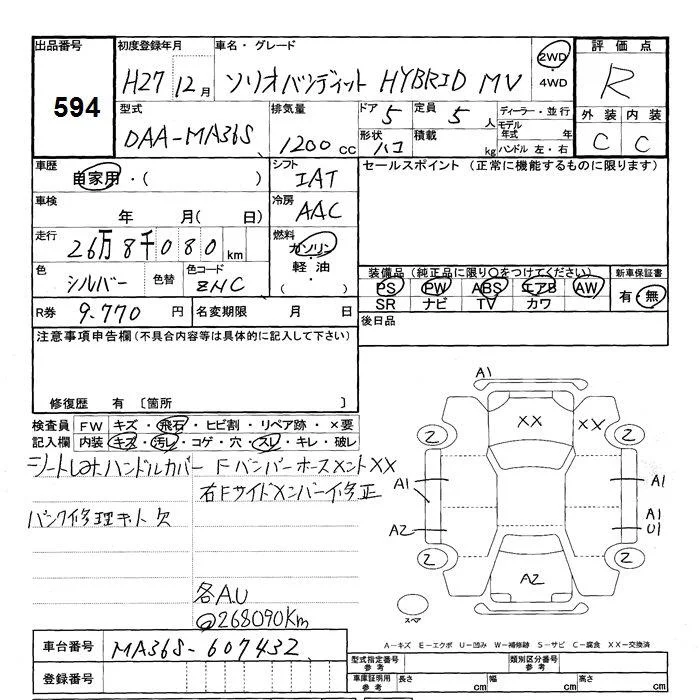 出品番号 初度登録年月 車名・グレード 評価点
594 H27 12月 ソリオバンディット HYBRID MV 2WD・4WD R
型式 排気量 ドア 5 定員 5人 ディーラー・並行 外装 内装
DAA-MA36S 1200cc 形状 ハコ 積載 kg モデル年式 年 ハンドル 左・右 C C
車歴 自家用・( ) シフト IAT セールスポイント (正常に機能するものに限ります)
車検 年 月( 日) 冷房 AAC
走行 26万8千080km 燃料 ガソリン・軽油・( )
色 シルバー 色替 色コード ZNC
装備品(純正品に限り○をつけてください) 新車保証書
PS PW ABS エアB AW 有・無
SR ナビ TV カワ
R券 9.770円 名変期限 月 日 後日品
注意事項申告欄(不具合内容等は具体的に記入して下さい)
修復歴 有 〔箇所 〕
検査員 FW キズ・飛石・ヒビ割・リペア跡・×要
記入欄 内装 キズ・汚レ・コゲ・穴・スレ・キレ・破レ
ハンドルカバー Fバンパーホースメント××
右Fサイドメンバー修正
パンク修理キット欠
各A.U
@268090Km
A1
XX XX
2 2
A1 A1
A1
A2 U1
2 2
A2
スペア
A-キズ E-エクボ U-凹み W-補修跡 S-サビ C-腐食 XX-交換済
車台番号 MA36S-607432
登録番号
型式指定番号 参考 類別区分番号 参考
車庫証明用 参考 長さ cm 幅 cm 高さ cm